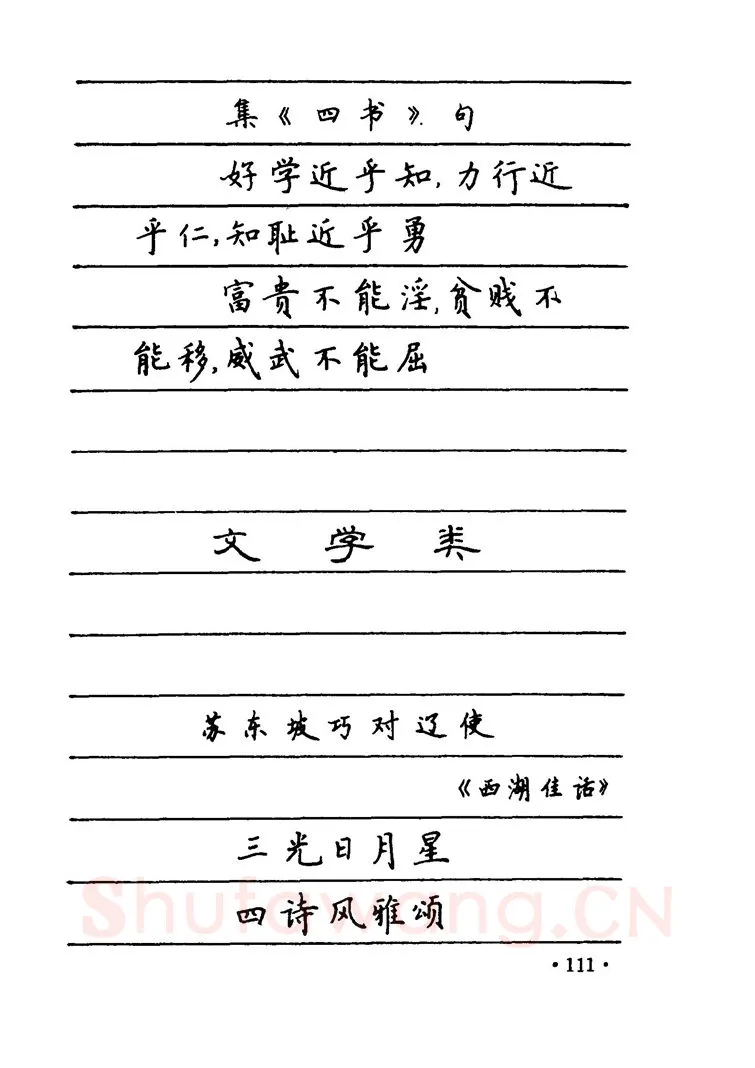 集《四书》句
好学近乎知,力行近
乎仁,知耻近乎勇
富贵不能淫,贫贱不
能移,威武不能屈
文学类
苏东坡巧对辽使
《西湖佳话》
三光日月星
四诗风雅颂
Shufawang.CN
·111·